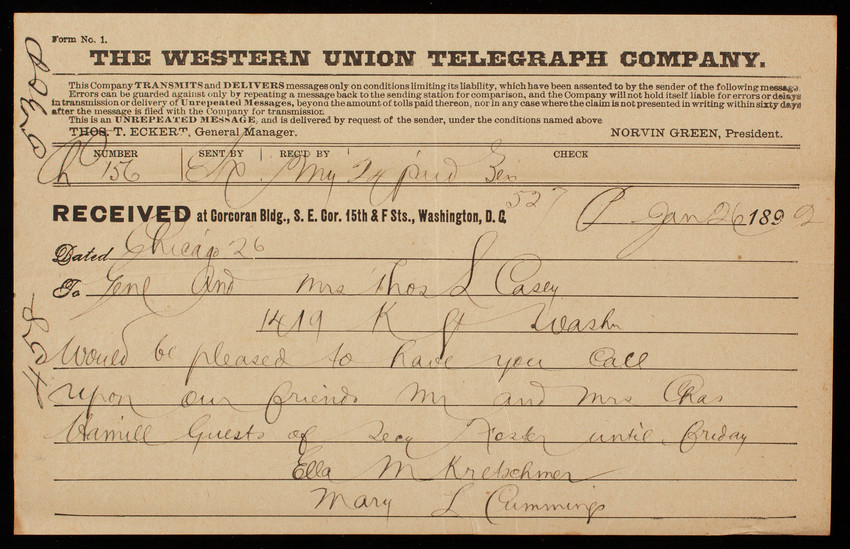 Form No. 1.
THE WESTERN UNION TELEGRAPH COMPANY.
This Company TRANSMITS and DELIVERS messages only on conditions limiting its liability, which have been assented to by the sender of the following message.
Errors can be guarded against only by repeating a message back to the sending station for comparison, and the Company will not hold itself liable for errors or delays
in transmission or delivery of Unrepeated Messages, beyond the amount of tolls paid thereon, nor in any case where the claim is not presented in writing within sixty days
after the message is filed with the Company for transmission.
This is an UNREPEATED MESSAGE, and is delivered by request of the sender, under the conditions named above
THOS. T. ECKERT, General Manager. NORVIN GREEN, President.
NUMBER SENT BY REC'D BY CHECK
Ch 156 My 24 paid
527
RECEIVED at Corcoran Bldg., S. E. Cor. 15th & F Sts., Washington, D. C. P Jan 26 1892
Dated Chicago 26
To Genl and Mrs Thos L Casey
1419 K St Washn
Would be pleased to have you call
upon our friends Mr and Mrs Chas
Hamill Guests of Secy Foster until friday
Ella M Kretschmer
Mary L Cummings